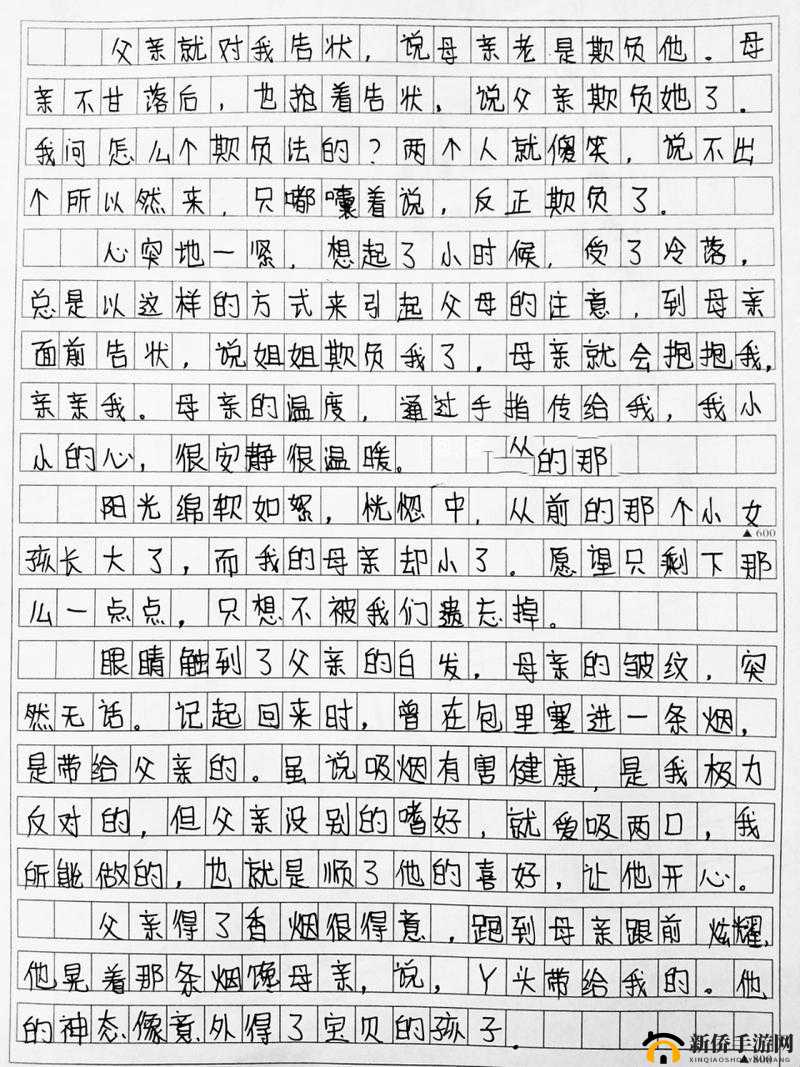 父亲就对我告状，说母亲老是欺负他。母
亲不甘落后，也抢着告状，说父亲欺负她了。
我问怎么个欺负法的？两个人就傻笑，说不出
个所以然来，只嘟囔着说，反正欺负了。
心突地一紧，想起了小时候，受了冷落，
总是以这样的方式来引起父母的注意，到母亲
面前告状，说姐姐欺负我了，母亲就会抱抱我，
亲亲我。母亲的温度，通过手指传给我，我小
小的心，很安静很温暖。 从的那
阳光绵软如絮，恍惚中，从前的那个小女
▲600
孩长大了，而我的母亲却小了。愿望只剩下那
么一点点，只想不被我们遗忘掉。
眼睛触到了父亲的白发，母亲的皱纹，突
然无话。记起回来时，曾在包里塞进一条烟，
是带给父亲的。虽说吸烟有害健康，是我极力
反对的，但父亲没别的嗜好，就爱吸两口，我
所能做的，也就是顺了他的喜好，让他开心。
父亲得了香烟很得意，跑到母亲跟前炫耀，
他晃着那条烟馋母亲，说，丫头带给我的。他
的神态像意外得了宝贝的孩子。
新侨手游网
XINQIAOSHOUYOUWANG
▲800